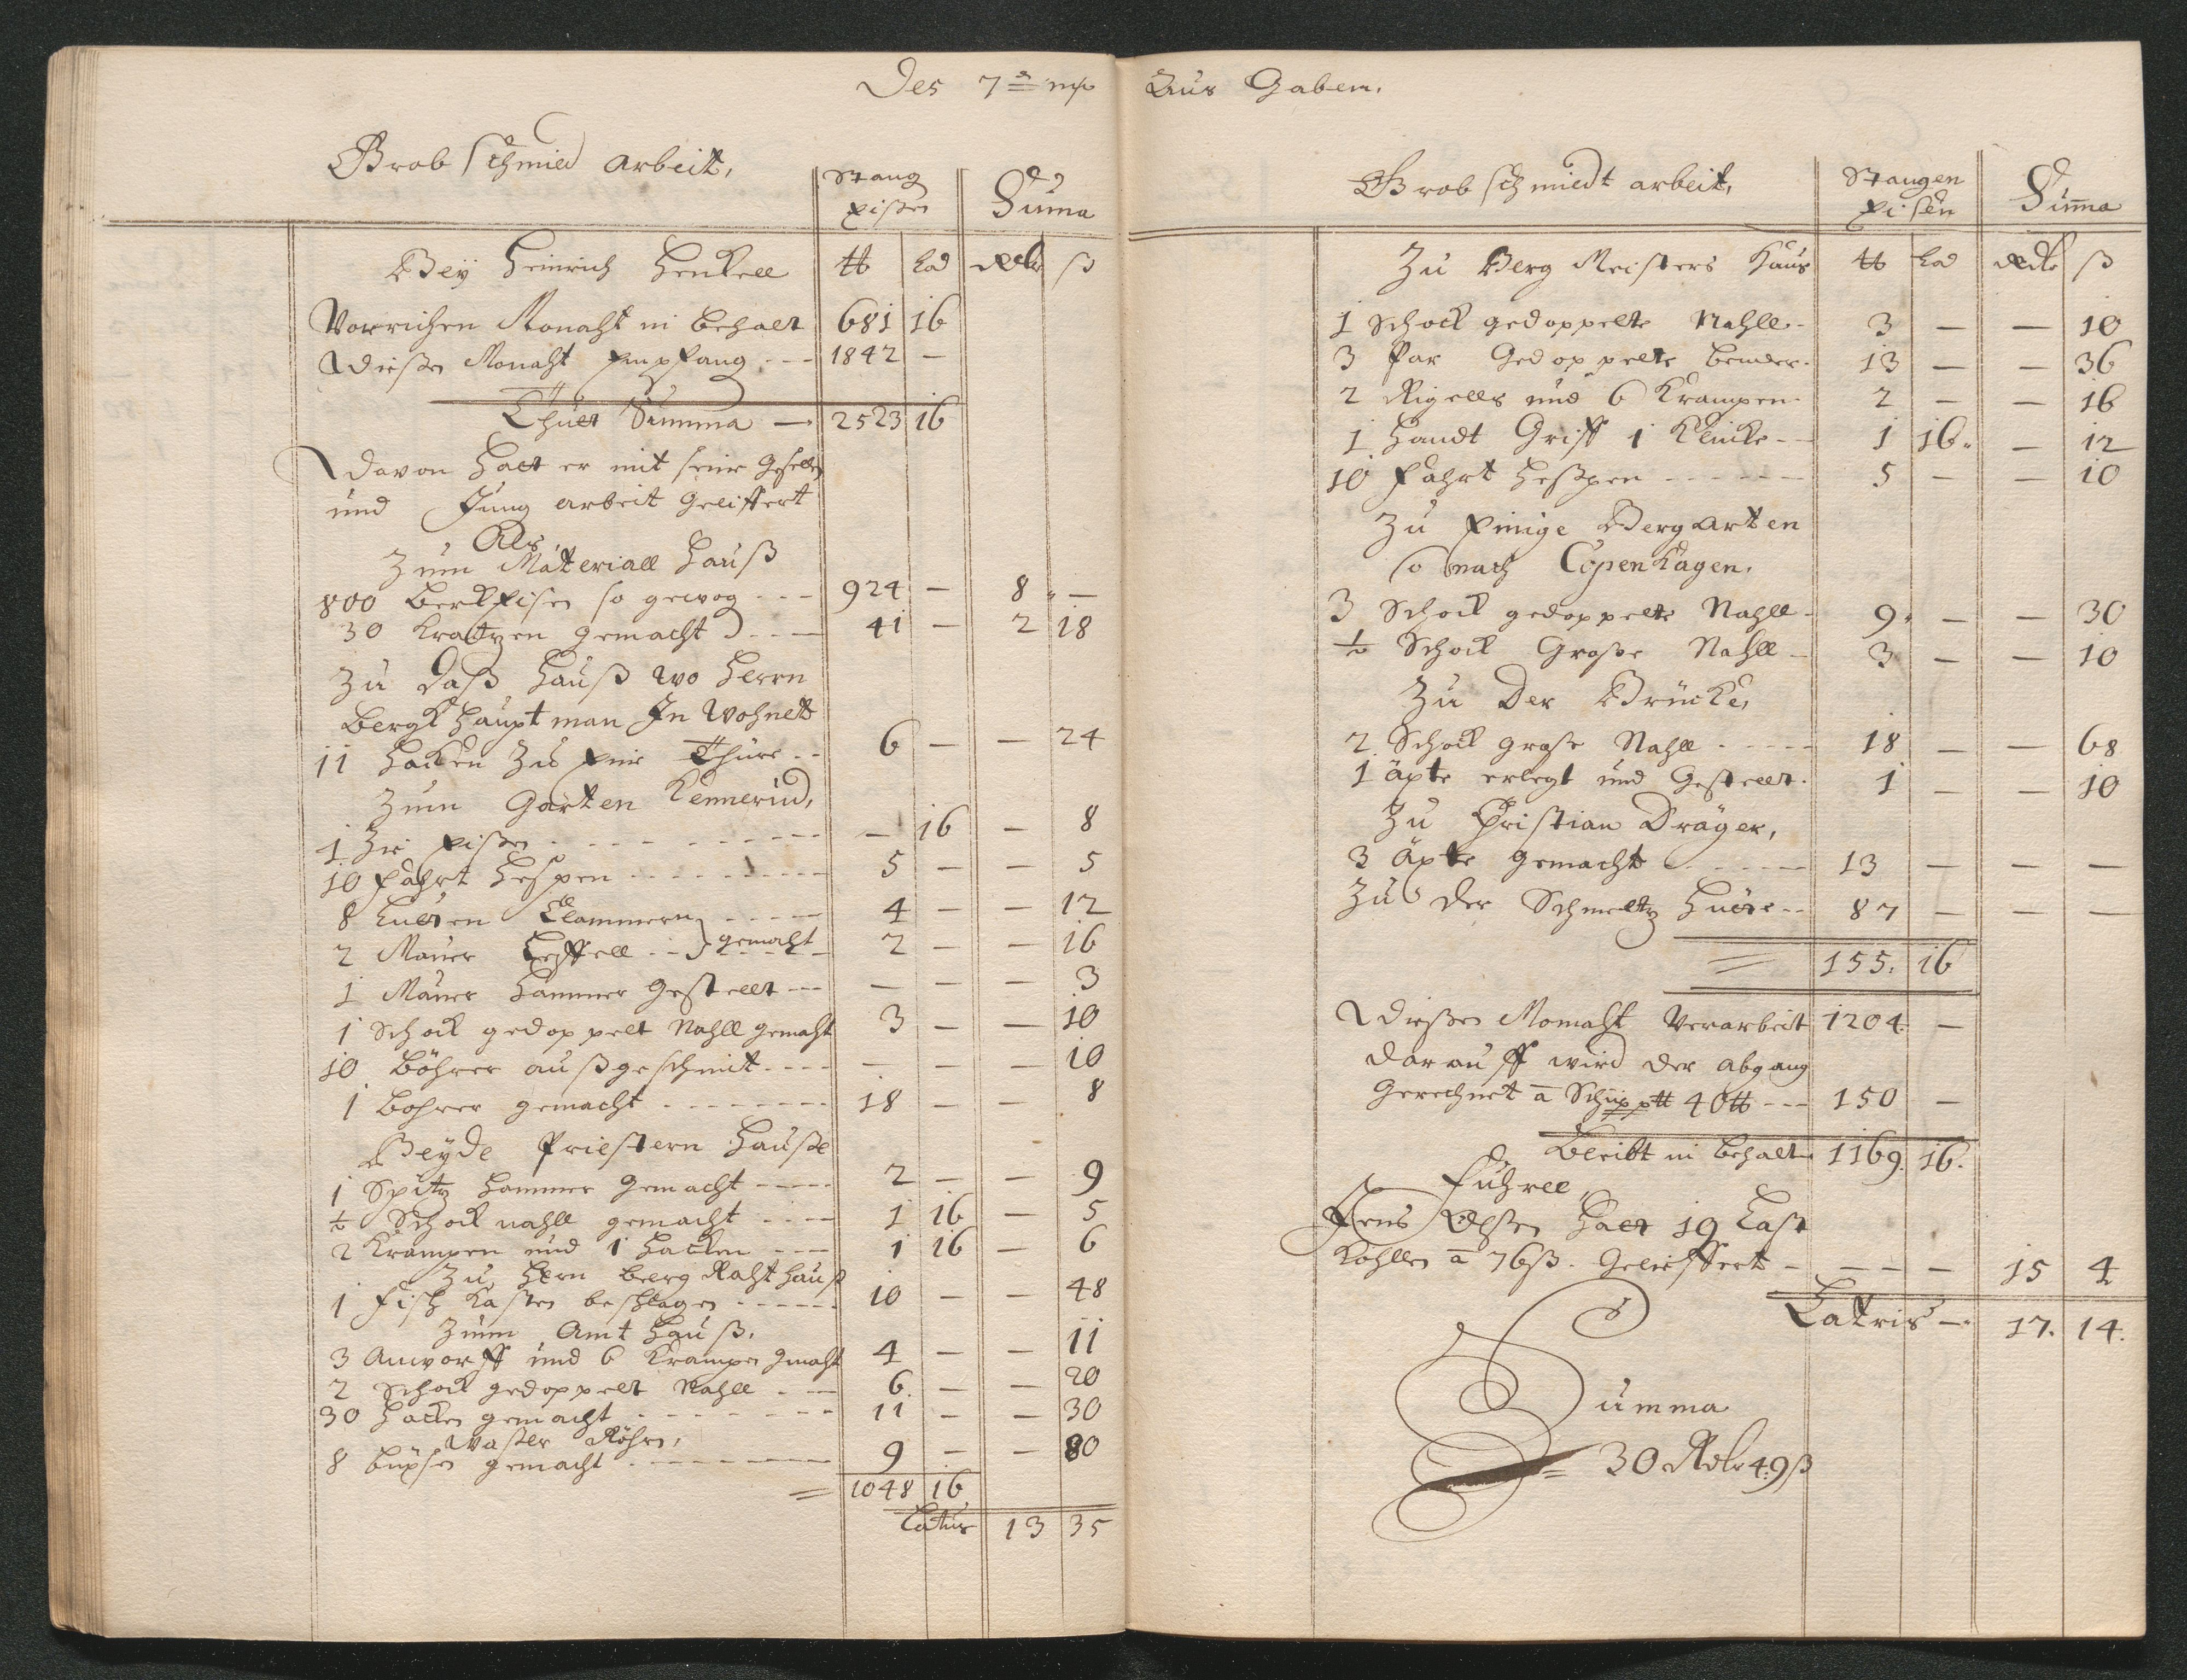 Des 7ᵈ mo
Grob schmied arbeit,
Stang Eißen
Suma
Bey Heinrich Henkell ℔ Lod Rdlr ß
Vorrichen Monaht in behalt 681 16
dießen Monaht Empfang --- 1842 —
Thutt Summa — 2523 16
Davon hatt er mit seine Gesellen
und Jung arbeit Geliffert
Als
Zum Materiall Hauß
800 berkEisen so gewog --- 924 — 8 —
30 Kratzen gemacht --- 41 — 2 18
Zu Daß Hauß wo Herrn
Bergk Haupt man In Wohnett
11 Hacken Zu Eine Thüre -- 6 — — 24
Zum Garten
1 Zie Eißen — 16 — 8
10 Fahrt Hespen 5 — — 5
8 Clammern 4 — — 12
2 Maur Leffell -- gemacht 2 — — 16
1 Maur Hammer Gestellt --- — — — 3
1 Schock gedoppelt Nahll gemaht 3 — — 10
10 Böhrer außgeschmit ---- — — — 10
1 Bohrer gemacht 18 — — 8
Beyde Priestern Hauße
1 Spitz Hammer Gemacht 2 — — 9
½ Schock nahll gemacht 1 16 — 5
2 Krampen und 1 Hacken --- 1 16 — 6
Zu Hern Berg Raht Hauß
1 Fisch Kasten beschlagen 10 — — 48
Zum Amt Hauß.
3 Anworff und 6 Krampen Gmaht 4 — — 11
2 Schock gedoppelt Nahll 6. — — 20
30 Hacken gemacht 11 — — 30
Waßer Röhren,
8 büxsen gemacht 9 — — 80
= 1048 16
Latus 13 35
Aus Gaben.
Grob schmiedt arbeit,
Stangen Eisen
Suma
Zu Berg Meisters Haus ℔ Lod Rdlr ß
1 Schock gedoppelte Nahll 3 — — 10
3 Par Gedoppelte bender 13 — — 36
2 Rigells und 6 Krampen 2 — — 16
1 Handt Griff 1 Klinke -- 1 16. — 12
10 Fahrt Heßpen 5 — — 10
Zu Einige Bergarten
so nach Copenhagen.
3 Schock gedoppelte Nahll 9. — — 30
½ Schock Große Nahll 3 — — 10
Zu Der Brücke,
2. Schock große Nahll 18 — — 68
1 äxte erlegt und Gestellt. 1 — — 10
Zu Christian Dräger,
3 äxte gemacht 13 — — —
Zu der Schmeltz Hütte -- 87 — — —
= 155. 16
dießen Monaht Verarbeit 1204. —
darauff wird der abgang
Gerechnet a Schipp℔ 40℔ --- 150 —
Bleibt in behalt 1169. 16.
Fuhrll,
Jens Olßen hatt 19 Last
Kohllen a 76ß. Gelieffert — — — 15 4
Latris — 17. 14.
Summa
= 30 Rdlr 49ß